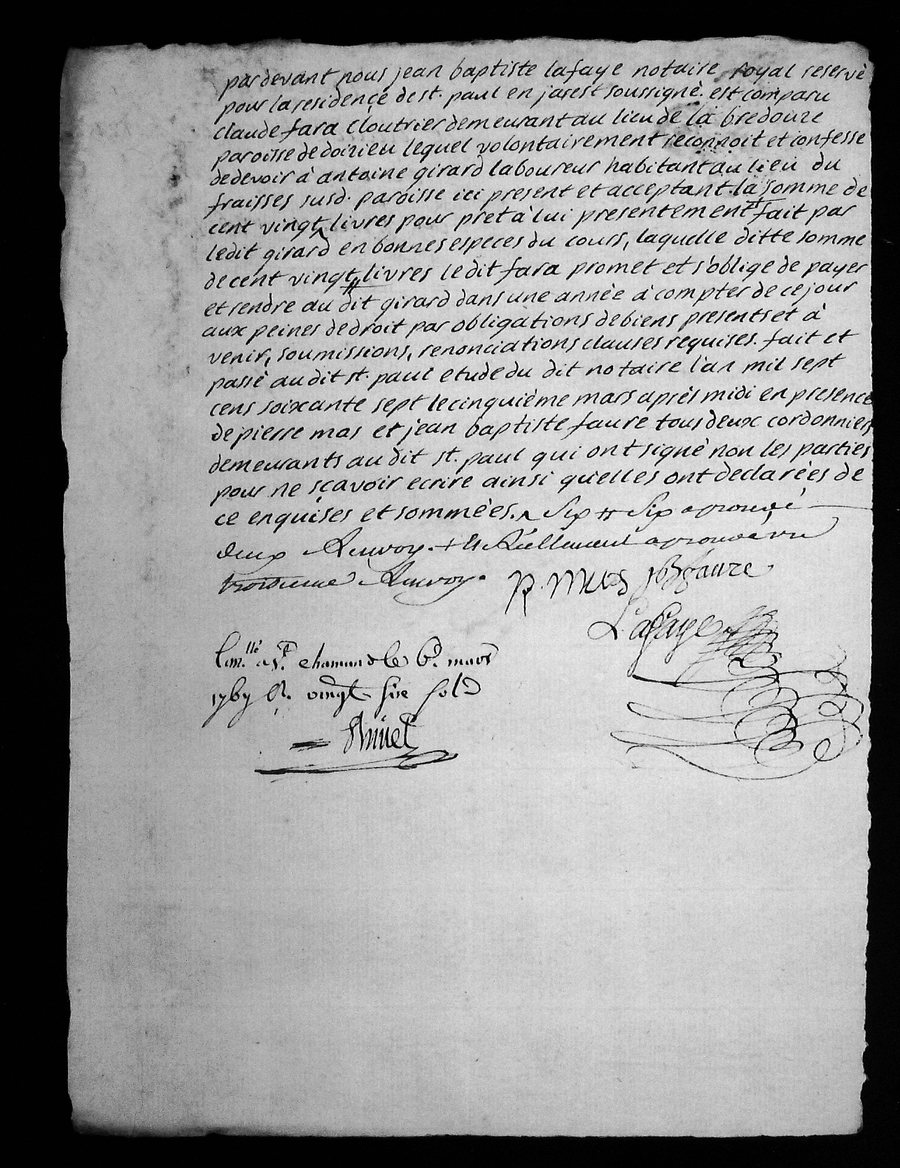 pardevant nous jean baptiste lafaye notaire royal reservé
pour la residence de st. paul en jarest soussigné. est comparu
claude fara cloutrier demeurant au lieu de la bredoure
paroisse de doizieu lequel volontairement reconnoit et confesse
de devoir à antoine girard laboureur habitant au lieu du
fraisses susd. paroisse ici present et acceptant. la somme de
cent vingt livres pour pret à lui presentement fait par
ledit girard en bonnes especes du cours, laquelle ditte somme
de cent vingt livres ledit fara promet et s'oblige de payer
et rendre au dit girard dans une année à compter de ce jour
aux peines de droit par obligations de biens presents et à
venir, soumissions, renonciations clauses requises. fait et
passé au dit st. paul etude du dit notaire l'an mil sept
cens soixante sept le cinquième mars après midi en presence
de pierre mas et jean baptiste faure tous deux cordonniers
demeurants au dit st. paul qui ont signé non les parties
pour ne sçavoir ecrire ainsi qu'elles ont declarées de
ce enquises et sommées. Six Six aprouvé
deux Renvoy. + aprouvé un
troisieme Renvoy.
P. Mas jbfaure
Lafaye
a St. chamond le 6e. mars
1767 vingt six sols